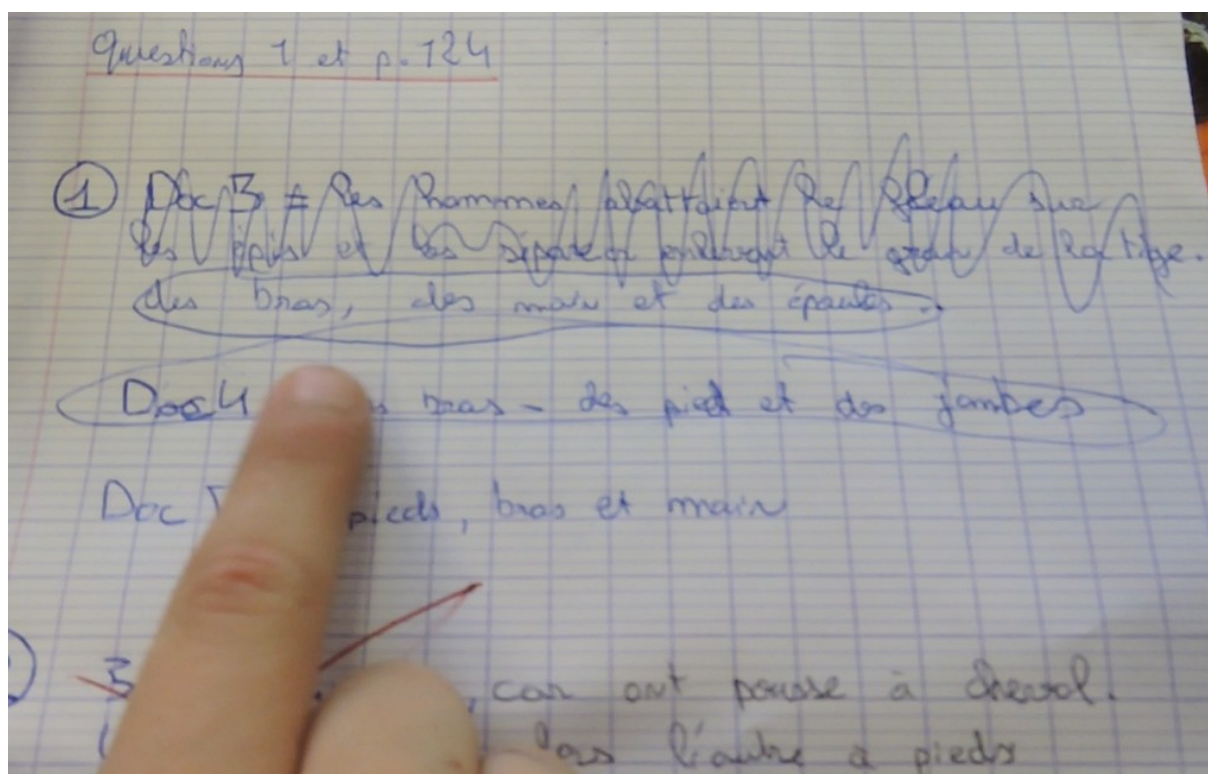 Questions 1 et p. 124
① Doc 3 = les hommes abattaient le fléau sur
les épis et les séparer enlevant le grain de la tige.
des bras, des main et des épaules.
Doc 4 bras - des pied et des jambes
Doc pieds, bras et main
3 , car ont pousse à cheval.
l'autre a pieds